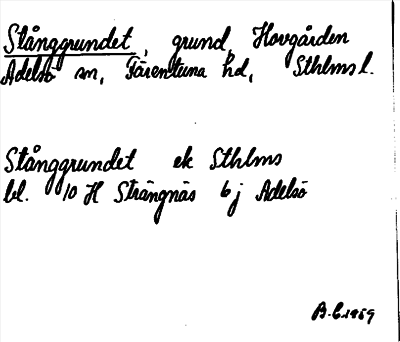 Stånggrundet, grund, Hovgården
Adelsö sn, Färentuna hd, Sthlms l.
Stånggrundet ek Sthlms
bl. 10 H Strängnäs 6j Adelsö
B.C. 1959